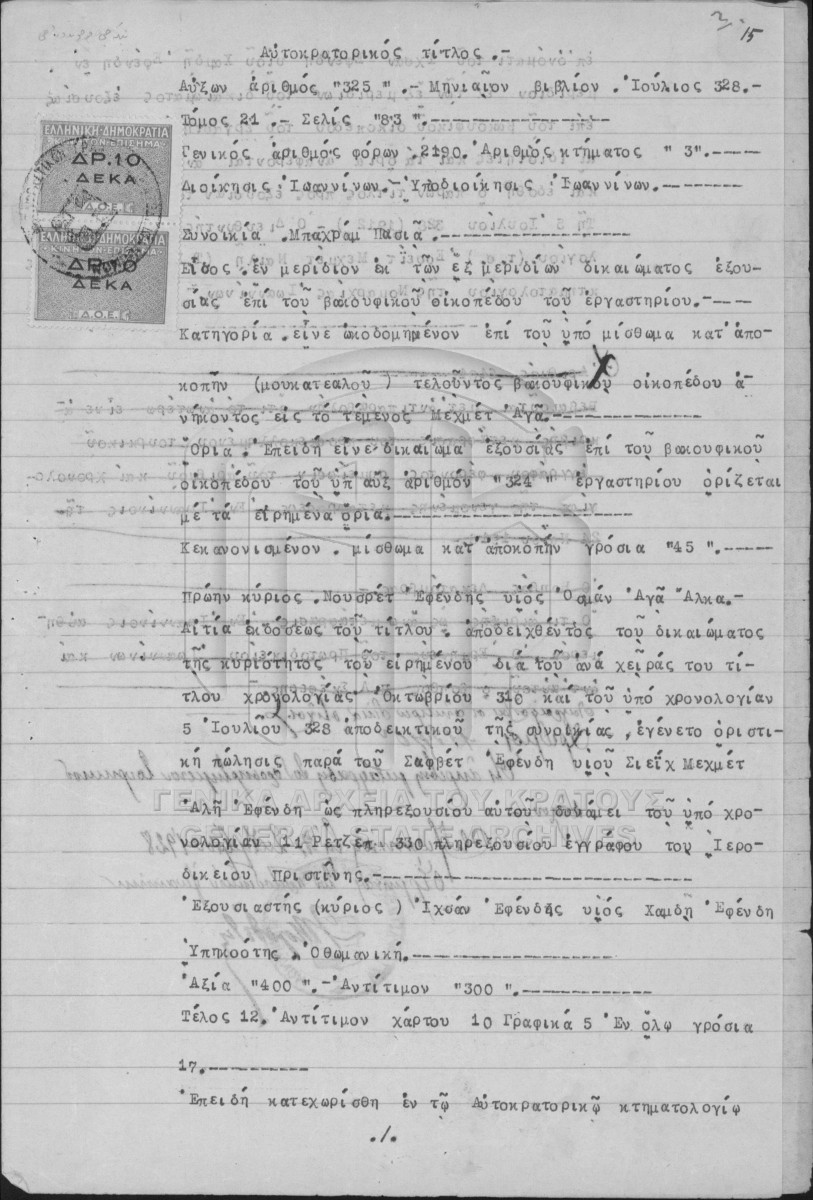 2/ 15
Αὐτοκρατορικός τίτλος.-
Αὔξων ἀριθμός "325".-Μηνιαῖον βιβλίον.Ἰούλιος 328.-
Τόμος 21.-Σελίς "83".-
Γενικός ἀριθμός φόρων.2190.Ἀριθμός κτήματος "3".-
Διοίκησις Ἰωαννίνων.-Ὑποδιοίκησις Ἰωαννίνων.-
Συνοικία.Μπαχράμ Πασιᾶ.-
Εἶδος.ἕν μερίδιον ἐκ τῶν ἕξ μεριδίων δικαιώματος ἐξου-
σίας ἐπί τοῦ βακουφικοῦ οἰκοπέδου τοῦ ἐργαστηρίου.-
Κατηγορία.εἶνε ὠκοδομημένον ἐπί τοῦ ὑπό μίσθωμα κατ'ἀπο-
κοπήν (μουκατεαλοῦ ) τελοῦντος βακουφικοῦ οἰκοπέδου ἀ-
νήκοντος εἰς τό τέμενος Μεχμέτ Ἀγᾶ.-
Ὅρια.Ἐπειδή εἶνε δικαίωμα ἐξουσίας ἐπί τοῦ βακουφικοῦ
οἰκοπέδου τοῦ ὑπ'αὔξ ἀριθμόν "324" ἐργαστηρίου ὁρίζεται
μέ τά εἰρημένα ὅρια.-
Κεκανονισμένον.μίσθωμα κατ'ἀποκοπήν γρόσια "45".-
Πρώην κύριος.Νουσρέτ Ἐφένδης υἱός Ὀσμάν Ἀγᾶ Ἄλκα.-
Αἰτία ἐκδόσεως τοῦ τίτλου.ἀποδειχθέντος τοῦ δικαιώματος
τῆς κυριότητος τοῦ εἰρημένου διά τοῦ ἀνά χεῖράς του τί-
τλου χρονολογίας Ὀκτωβρίου 310 καί τοῦ ὑπό χρονολογίαν
5 Ἰουλίου 328 ἀποδεικτικοῦ τῆς συνοικίας,ἐγένετο ὁριστι-
κή πώλησις παρά τοῦ Σαφβέτ Ἐφένδη υἱοῦ Σιεΐχ Μεχμέτ
Ἀλῆ Ἐφένδη ὡς πληρεξουσίου αὐτοῦ δυνάμει τοῦ ὑπό χρο-
νολογίαν 11 Ρετζέπ 330 πληρεξουσίου ἐγγράφου τοῦ Ἱερο-
δικείου Πριστίνης.-
Ἐξουσιαστής (κύριος ) Ἰχσάν Ἐφένδης υἱός Χαμδῆ Ἐφένδη
Ὑπηκοότης.Ὀθωμανική.-
Ἀξία "400".-Ἀντίτιμον "300".-
Τέλος 12.Ἀντίτιμον χάρτου 10 Γραφικά 5 Ἐν ὅλῳ γρόσια
17.-
Ἐπειδή κατεχωρίσθη ἐν τῷ Αὐτοκρατορικῷ κτηματολογίῳ
./.
ΕΛΛΗΝΙΚΗ·ΔΗΜΟΚΡΑΤΙΑ
ΔΡ.10
ΔΕΚΑ
Δ.Ο.Ε.Σ
ΕΛΛΗΝΙΚΗ·ΔΗΜΟΚΡΑΤΙΑ
ΔΡ.10
ΔΕΚΑ
Δ.Ο.Ε.Σ
ΓΕΝΙΚΑ ΑΡΧΕΙΑ ΤΟΥ ΚΡΑΤΟΥΣ
GENERAL STATE ARCHIVES